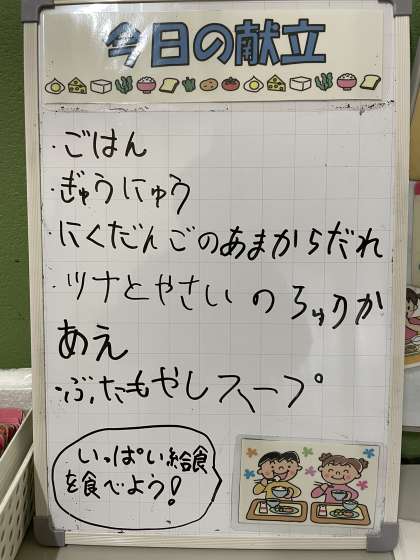 今日の献立
・ごはん
・ぎゅうにゅう
・にくだんごのあまからだれ
・ツナとやさいのちゅうか
あえ
・ぶたもやしスープ
いっぱい給食
を食べよう!